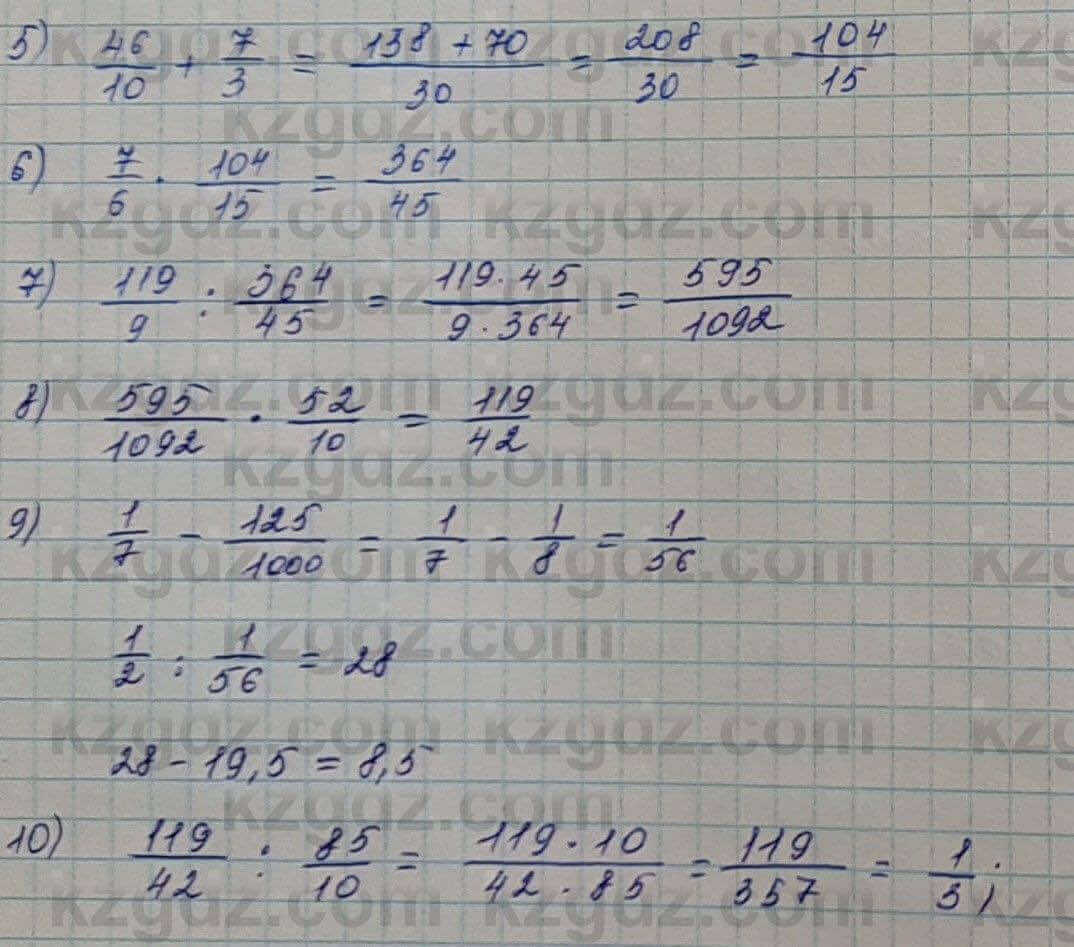 5) 46/10 + 7/3 = 138 + 70/30 = 208/30 = 104/15
6) 7/6 · 104/15 = 364/45
7) 119/9 : 364/45 = 119 · 45/9 · 364 = 595/1092
8) 595/1092 · 52/10 = 119/42
9) 1/7 - 125/1000 = 1/7 - 1/8 = 1/56
1/2 : 1/56 = 28
28 - 19,5 = 8,5
10) 119/42 : 85/10 = 119 · 10/42 · 85 = 119/357 = 1/3;
kzgdz.com